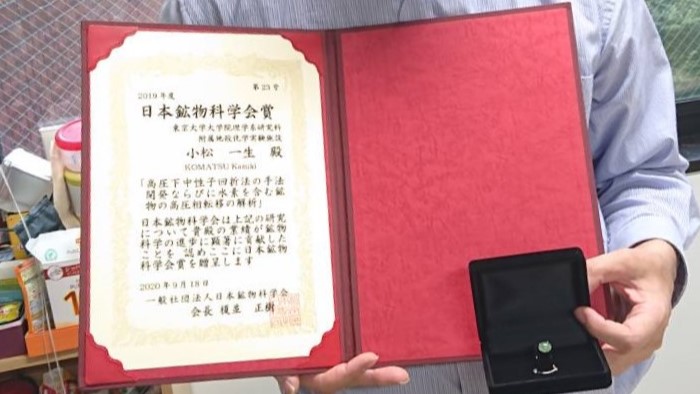 第23号
2019年度
日本鉱物科学会賞
東京大学大学院理学系研究科
附属地殻化学実験施設
小松　一生　殿
KOMATSU Kazuki
「高圧下中性子回折法の手法
開発ならびに水素を含む鉱
物の高圧相転移の解析」
日本鉱物科学会は上記の研究
について貴殿の業績が鉱物
科学の進歩に顕著に貢献した
ことを 認めここに日本鉱物
科学会賞を贈呈します
2020年9月18日
一般社団法人日本鉱物科学会
会長 榎並　正樹